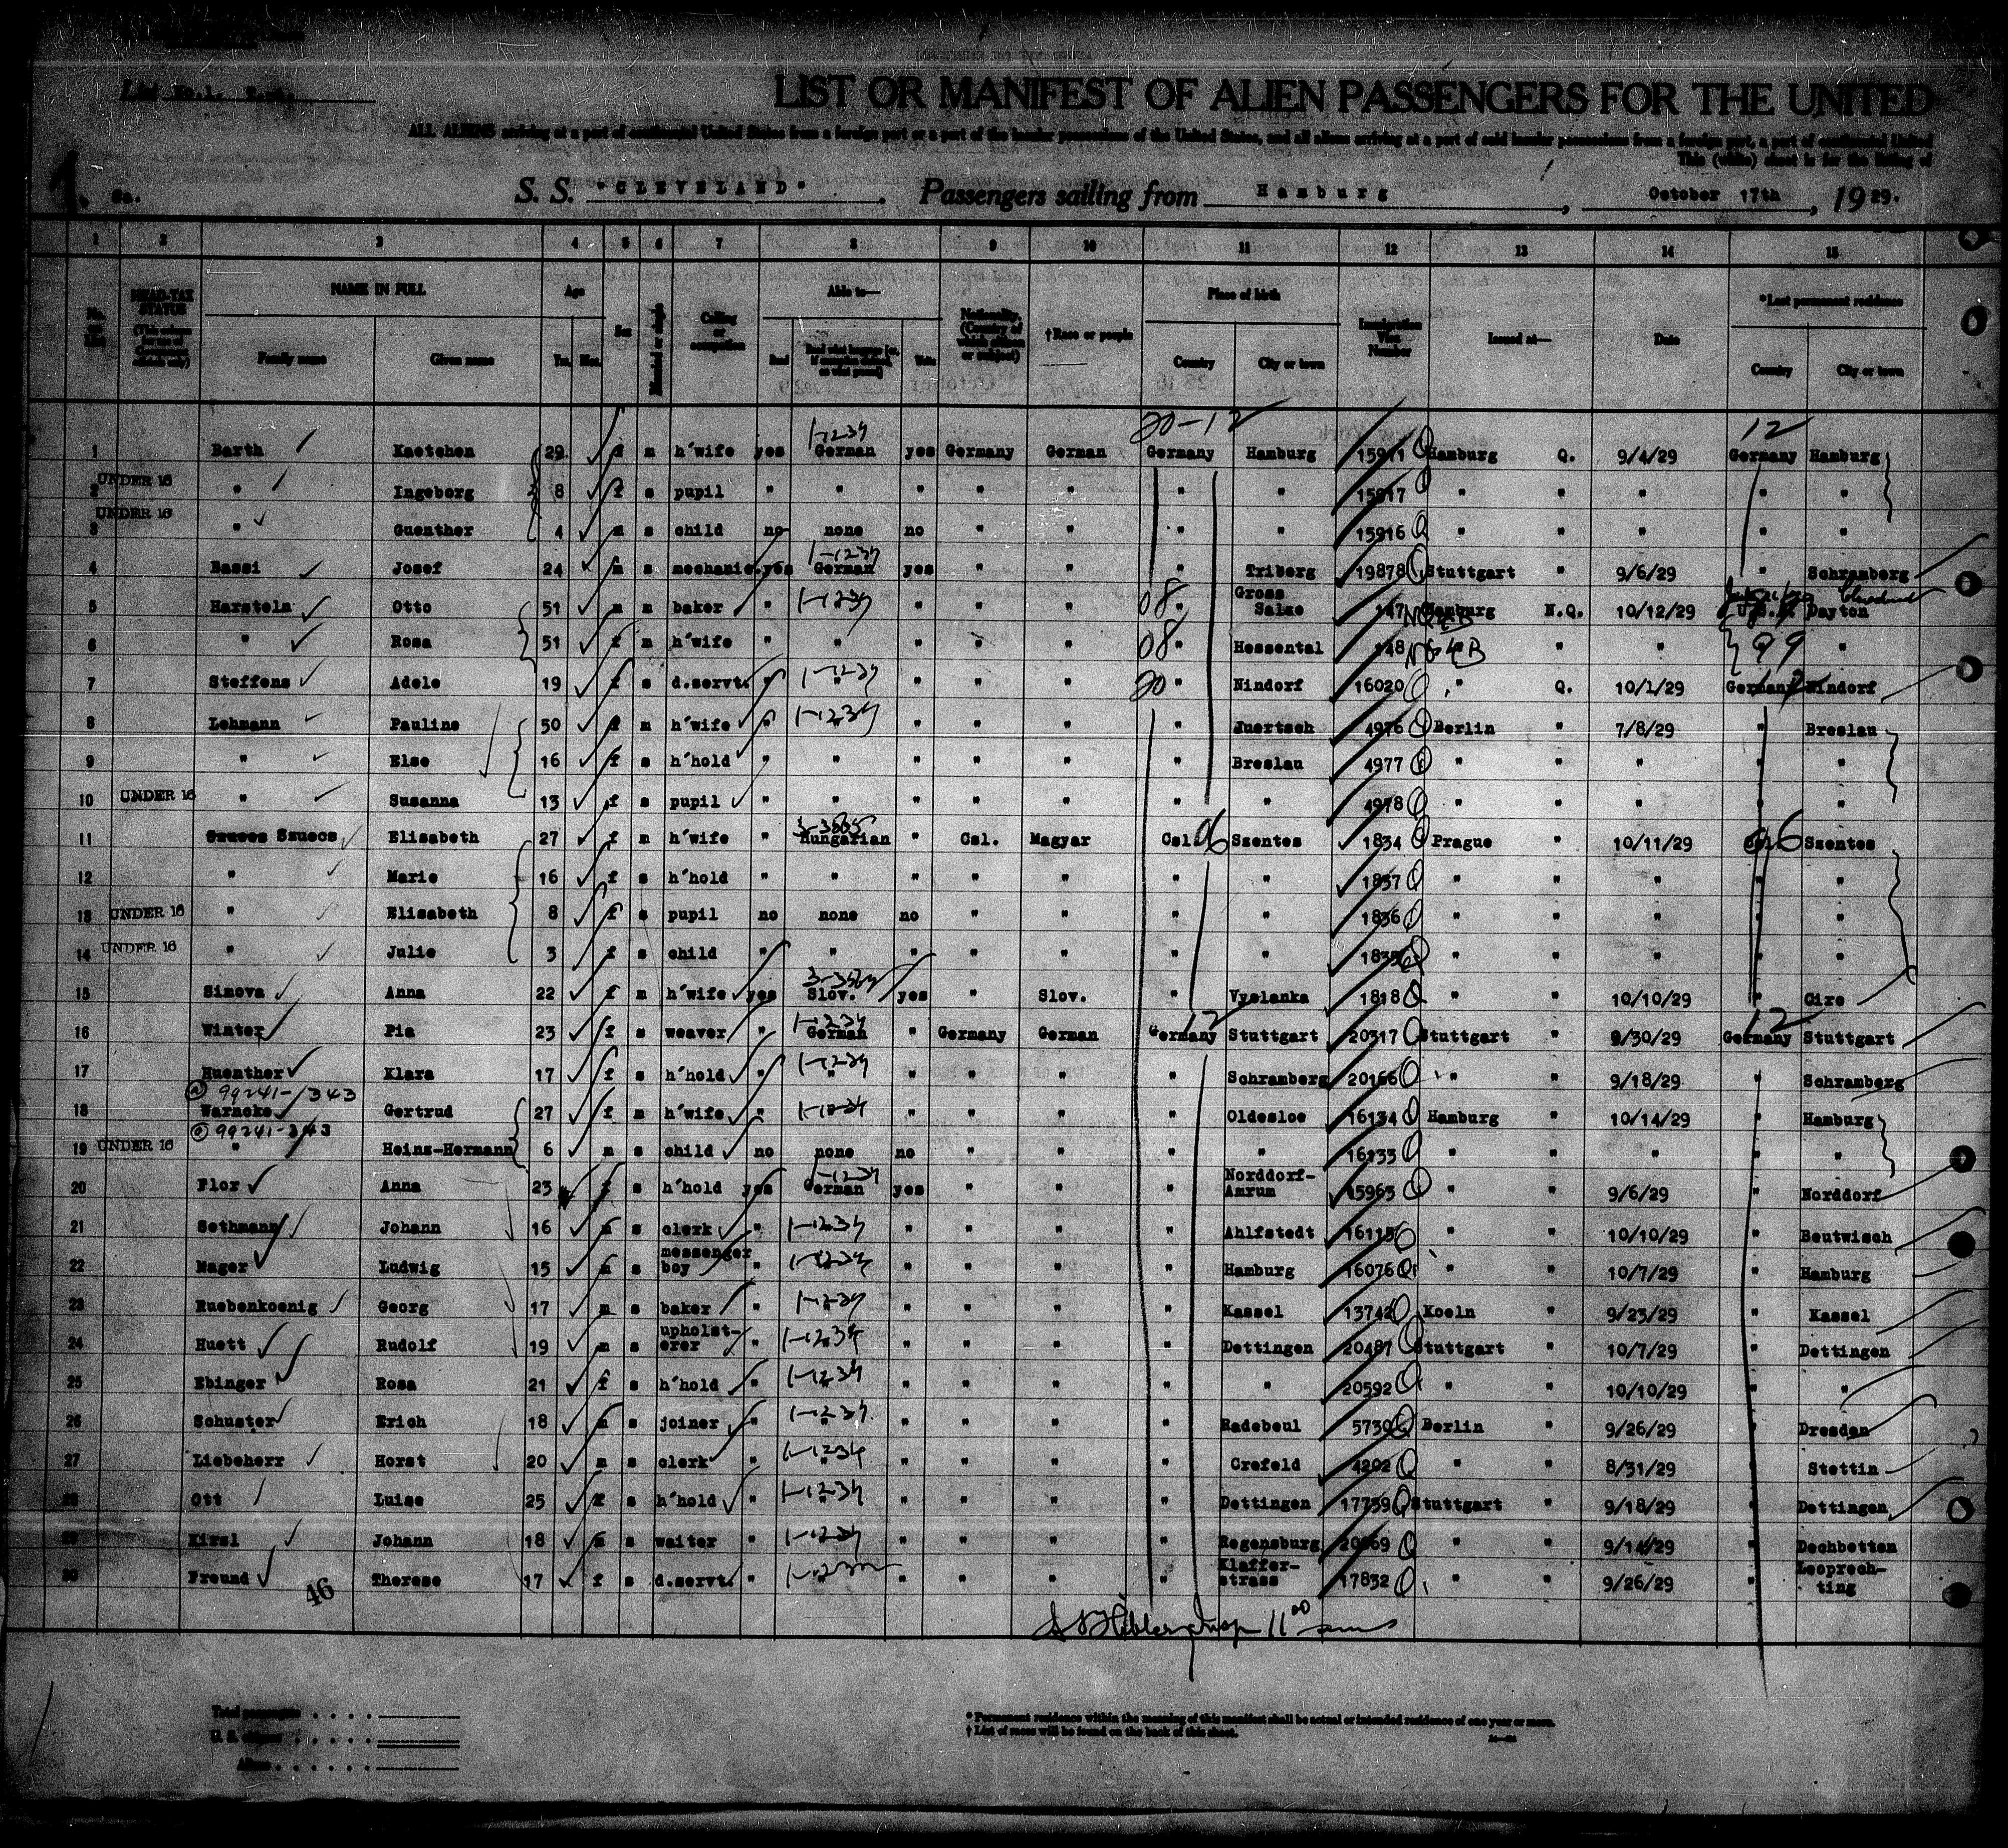 LIST OR MANIFEST OF ALIEN PASSENGERS FOR THE UNITED
ALL ALIENS arriving at a port of continental United States from a foreign port or a port of the insular possessions of the United States, and all aliens arriving at a port of said insular possessions from a foreign port, a port of continental United
This (white) sheet is for the listing of
S. S. "CLEVELAND". Passengers sailing from Hamburg, October 17th, 1929.
1 2 3 4 5 6 7 8 9 10 11 12 13 14 15
HEAD-TAX STATUS NAME IN FULL Age Sex Married or single Calling or occupation Able to— Nationality. (Country of which citizen or subject) †Race or people Place of birth Immigration Visa Number Issued at— Date *Last permanent residence
Family name Given name Yrs. Mos. Read Write Country City or town Country City or town
20-12 12
1 Barth Kaetchen 29 f m h'wife yes German yes Germany German Germany Hamburg 15911 Hamburg Q. 9/4/29 Germany Hamburg
UNDER 16
2 " Ingeborg 8 f s pupil " " " " " " " 15917 " " " " "
UNDER 16
3 " Guenther 4 m s child no none no " " " " 15916 " " " " "
4 Bassi Josef 24 m s mechanic yes German yes " " " Triberg 19878 Stuttgart " 9/6/29 " Schramberg
5 Harstein Otto 51 m m baker " " " " 08 " Gross Salze 147 Hamburg N.Q. 10/12/29 U.S.A. Dayton
6 " Rosa 51 f m h'wife " " " " " 08 " Hessental 148 " " " 99 "
7 Steffens Adele 19 f s d.servt. " " " " " 20 " Nindorf 16020 " Q. 10/1/29 Germany Nindorf
8 Lehmann Pauline 50 f m h'wife " " " " " " Juertsch 4976 Berlin " 7/8/29 " Breslau
9 " Else 16 f s h'hold " " " " " " Breslau 4977 " " " " "
10 UNDER 16 " Susanna 13 f s pupil " " " " " " " 4978 " " " " "
11 Szuecs Elisabeth 27 f m h'wife " Hungarian " Csl. Magyar Csl. 06 Szentes 1834 Prague " 10/11/29 Csl. 6 Szentes
12 " Marie 16 f s h'hold " " " " " " " 1837 " " " " "
13 UNDER 16 " Elisabeth 8 f s pupil no none no " " " " 1836 " " " " "
14 UNDER 16 " Julie 3 f s child " " " " " " " 1835 " " " " "
15 Simova Anna 22 f m h'wife yes Slov. yes " Slov. " Vyslanka 1818 " " 10/10/29 " Circ
16 Winter Pia 23 f s weaver " German " Germany German Germany 12 Stuttgart 20317 Stuttgart " 9/30/29 Germany 12 Stuttgart
17 Huenther Klara 17 f s h'hold " " " " " " Schramberg 20166 " " 9/18/29 " Schramberg
99241-1343
18 Warncke Gertrud 27 f m h'wife " " " " " Oldesloe 16134 Hamburg " 10/14/29 " Hamburg
99241-343
19 UNDER 16 " Heinz-Hermann 6 m s child no none no " " " " 16133 " " " " "
20 Flor Anna 23 f s h'hold yes German yes " " " Norddorf-Amrum 15963 " " 9/6/29 " Norddorf
21 Sethmann Johann 16 m s clerk " " " " " Ahlfstedt 16115 " " 10/10/29 " Beutwisch
22 Mager Ludwig 15 m s messenger boy " " " " " Hamburg 16076 " " 10/7/29 " Hamburg
23 Ruebenkoenig Georg 17 m s baker " " " " " Kassel 13742 Koeln " 9/23/29 " Kassel
24 Huett Rudolf 19 m s upholsterer " " " " " Dettingen 20487 Stuttgart " 10/7/29 " Dettingen
25 Ebinger Rosa 21 f s h'hold " " " " " " " 20592 " " 10/10/29 " "
26 Schuster Erich 18 m s joiner " " " " " " Radebeul 5730 Berlin " 9/26/29 " Dresden
27 Liebeherr Horst 20 m s clerk " " " " " " Crefeld 4202 " " 8/31/29 " Stettin
28 Ott Luise 25 f s h'hold " " " " " " Dettingen 17739 Stuttgart " 9/18/29 " Dettingen
29 Kirsl Johann 18 m s waiter " " " " " " Regensburg 20069 " " 9/14/29 " Dechbetten
30 Freund Therese 17 f s d.servt. " " " " " " Klafferstrass 17832 " " 9/26/29 " Leoprechting
46
11 00
Total passengers
U. S. citizens
Aliens
* Permanent residence within the meaning of this manifest shall be actual or intended residence of one year or more.
† List of races will be found on the back of this sheet.